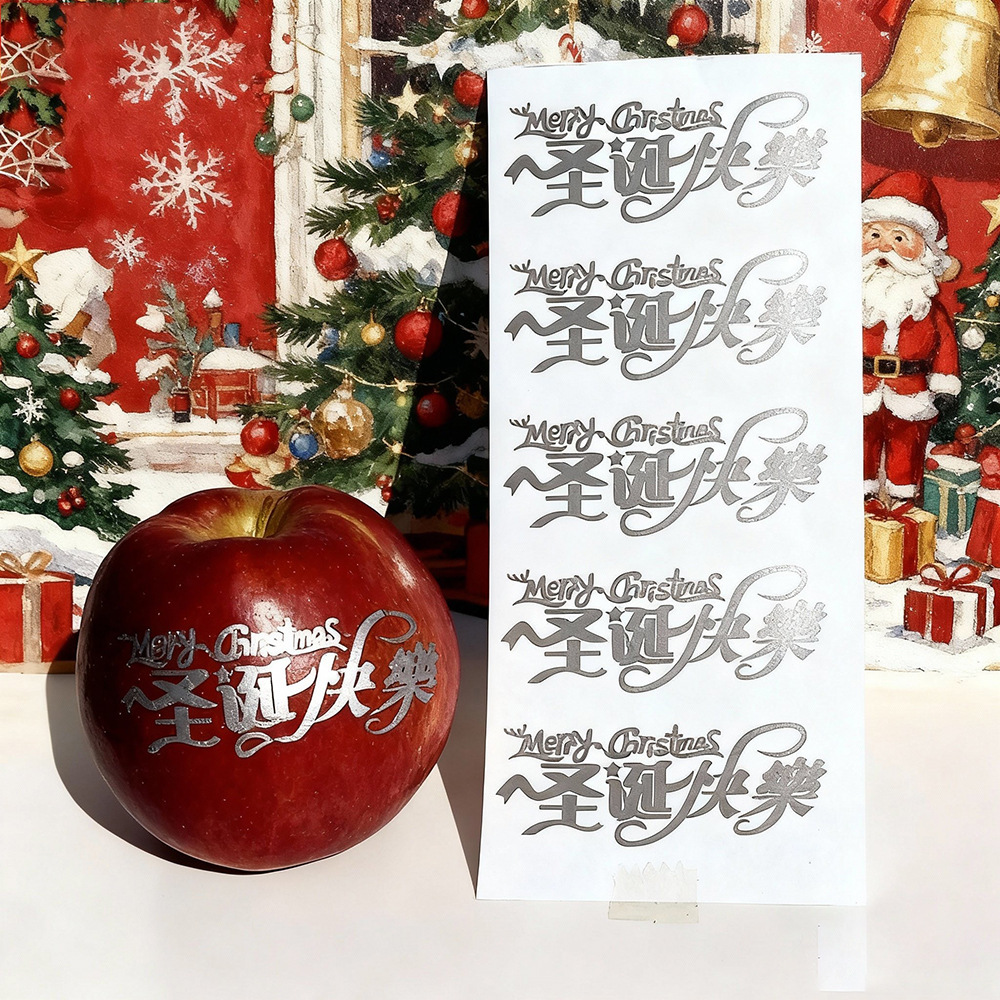 Merry Christmas
圣诞快樂
Merry Christmas
圣诞快樂
Merry Christmas
圣诞快樂
Merry Christmas
圣诞快樂
Merry Christmas
圣诞快樂
Merry Christmas
圣诞快樂